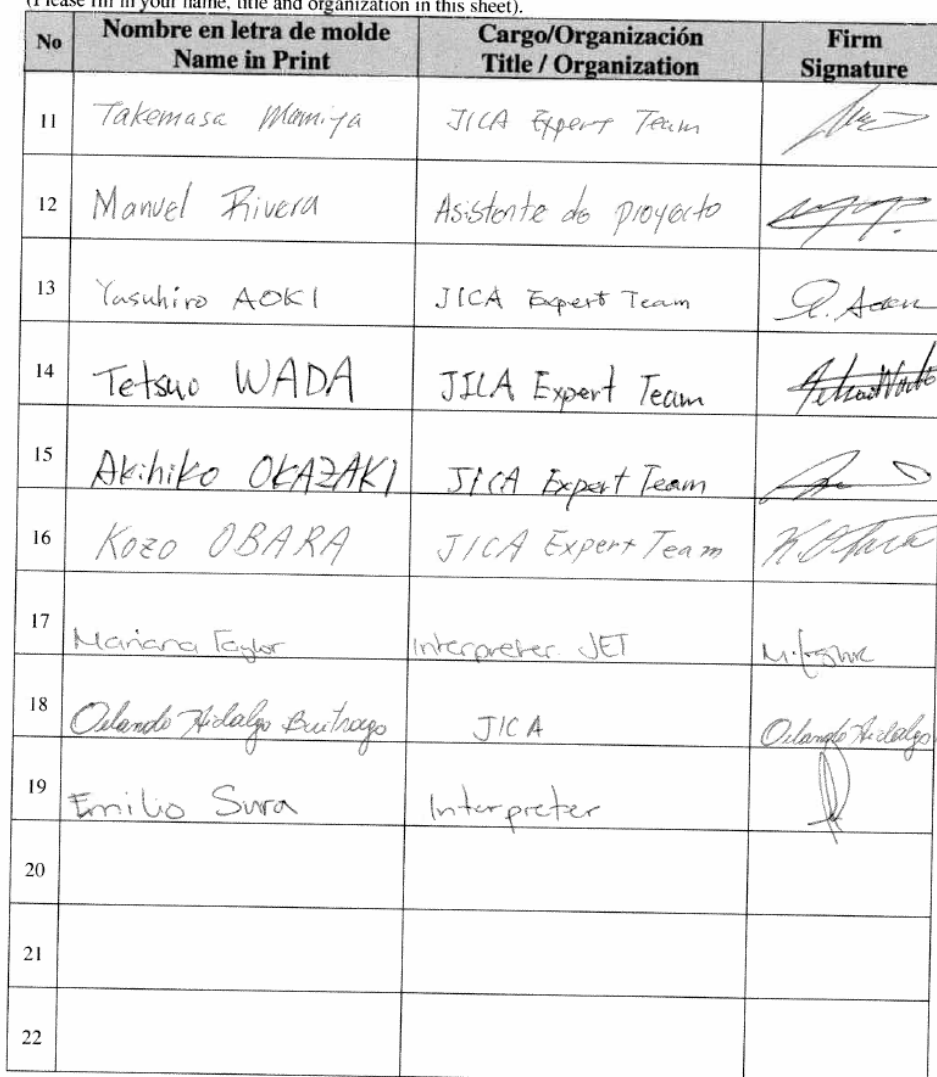 (Please fill in your name, title and organization in this sheet).
No Nombre en letra de molde Cargo/Organización Firm
Name in Print Title / Organization Signature
11 Takemasa Mamiya JICA Expert Team
12 Manuel Rivera Asistente de proyecto
13 Yasuhiro AOKI JICA Expert Team
14 Tetsuo WADA JICA Expert Team Tetsuo Wada
15 Akihiko OKAZAKI JICA Expert Team
16 Kozo OBARA JICA Expert Team K. Obara
17 Mariana Taylor Interpreter JET
18 Orlando Hidalgo Buitrago JICA Orlando Hidalgo
19 Emilio Sura Interpreter
20
21
22